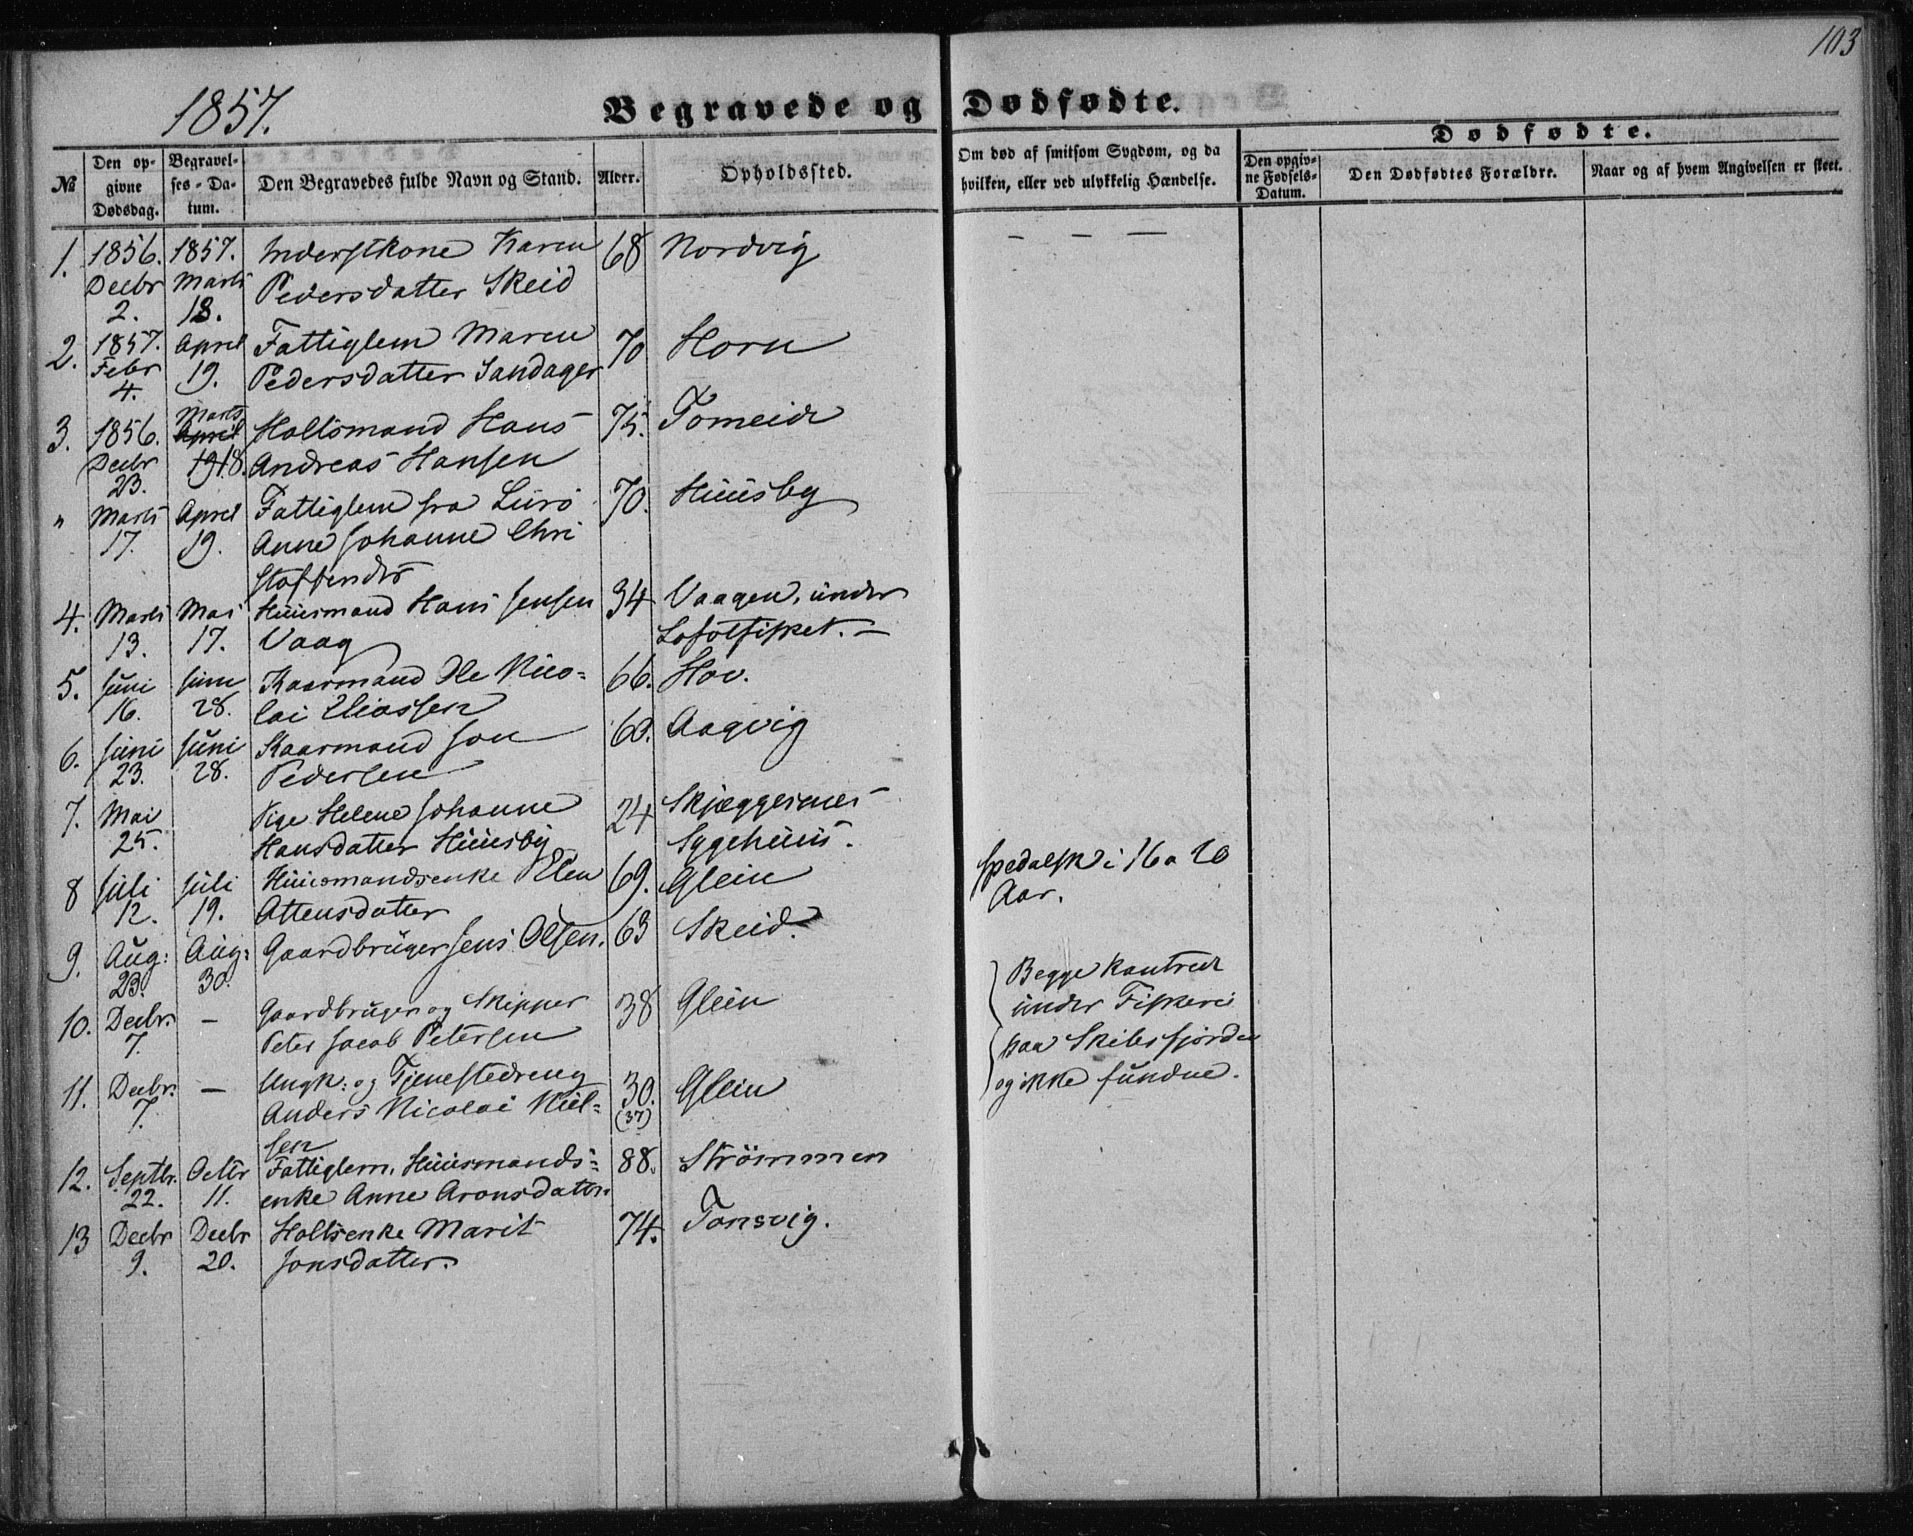 103
1857.
Begravede og Dødfødte.
Dødfødte.
№
Den op-
givne
Dødsdag.
Begravel-
ses-Da-
tum.
Den Begravedes fulde Navn og Stand.
Alder.
Opholdssted.
Om død af smitsom Sygdom, og da
hvilken, eller ved ulykkelig Hændelse.
Den opgiv-
ne Fødsels-
Datum.
Den Dødfødtes Forældre.
Naar og af hvem Angivelsen er skeet.
1. 1856. 1857. Inderstkone Karen 68 Nordvig — — —
Decbr Marts Pedersdatter Skeid
2. 18.
2. 1857. April Fattiglem Maren 70 Horn
Febr 19. Pedersdatter Sandager
4.
3. 1856. Marts April Holtsmand Hans 75. Tomeide
Decbr 19 18. Andreas Hansen
23.
" Marts April Fattiglem fra Lurö 70. Huusby
17. 19. Anne Johanne Chri
stoffersdr
4. Marts Mai Huusmand Hans Jensen 34 Vaagen, under
13. 17. Vaag Lofotfisket. —
5. Juni Juni Kaarmand Ole Nico- 66. Hov.
16. 28. lai Eliassen
6. Juni Juni Kaarmand Jon 60. Aagvig
23. 28. Pedersen
7. Mai Pige Helene Johanne 24 Skjæggesnes
25. Hansdatter Huusby Sygehuus.
spedalsk i 16 a 20
Aar.
8 Juli Juli Huusmandsenke Elen 69. Glein
12. 19. Attensdatter
9. Aug: Aug: Gaardbruger Jens Olsen. 63 Skeid.
23. 30.
10. Decbr. — Gaardbruger og Skipper 38 Glein
7. Peter Jacob Petersen
Begge kantret
under Fiskeri
paa Skibsfjorden
og ikke fundne.
11. Decbr. — Ungk: og Tjenestedreng 30. Glein
7. Anders Nicolai Niel- (37)
sen
12. Septbr. Octbr Fattiglem, Huusmands- 88. Strömmen
22. 11. enke Anne Aronsdatter
13 Decbr Decbr Holtsenke Marit 74. Tonsvig.
9. 20. Jonsdatter.